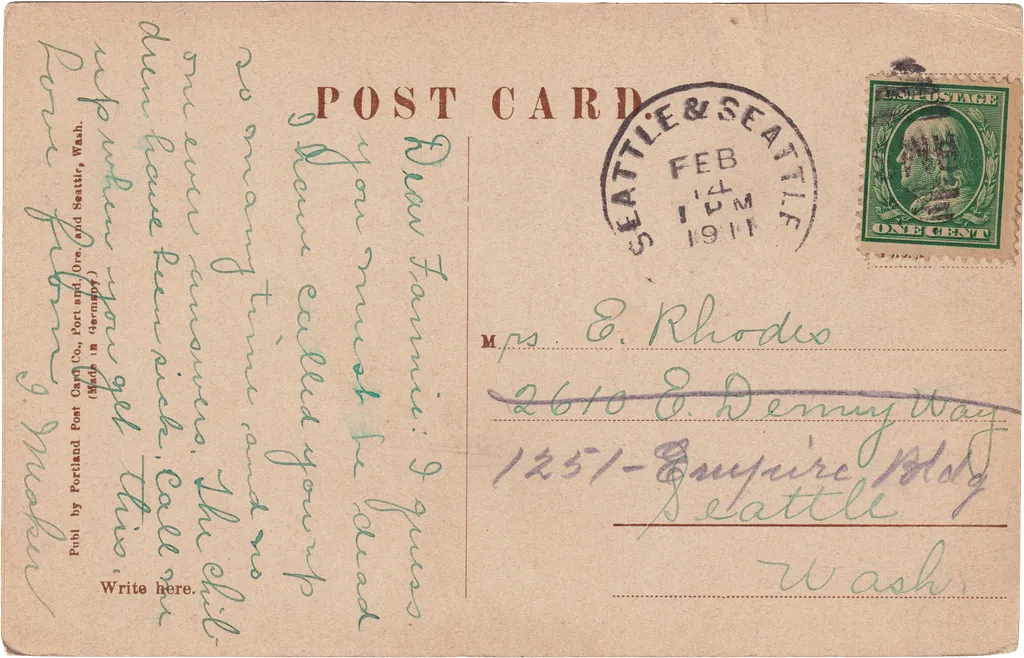 POST CARD.
SEATTLE & SEATTLE
FEB
14
1 PM
1911
U.S. POSTAGE
ONE CENT
Dear Fannie: I guess
you must be dead
I have called you up
so many time, and no
one ever answers. The chil-
dren have been sick. Call me
up when you get this.
Love from
I. Maker
Mrs. E. Rhodes
2610 E. Denny Way
1251-Empire Bldg
Seattle
Wash.
Publ by Portland Post Card Co., Port and, Ore. and Seattle, Wash.
(Made in Germany.)
Write here.